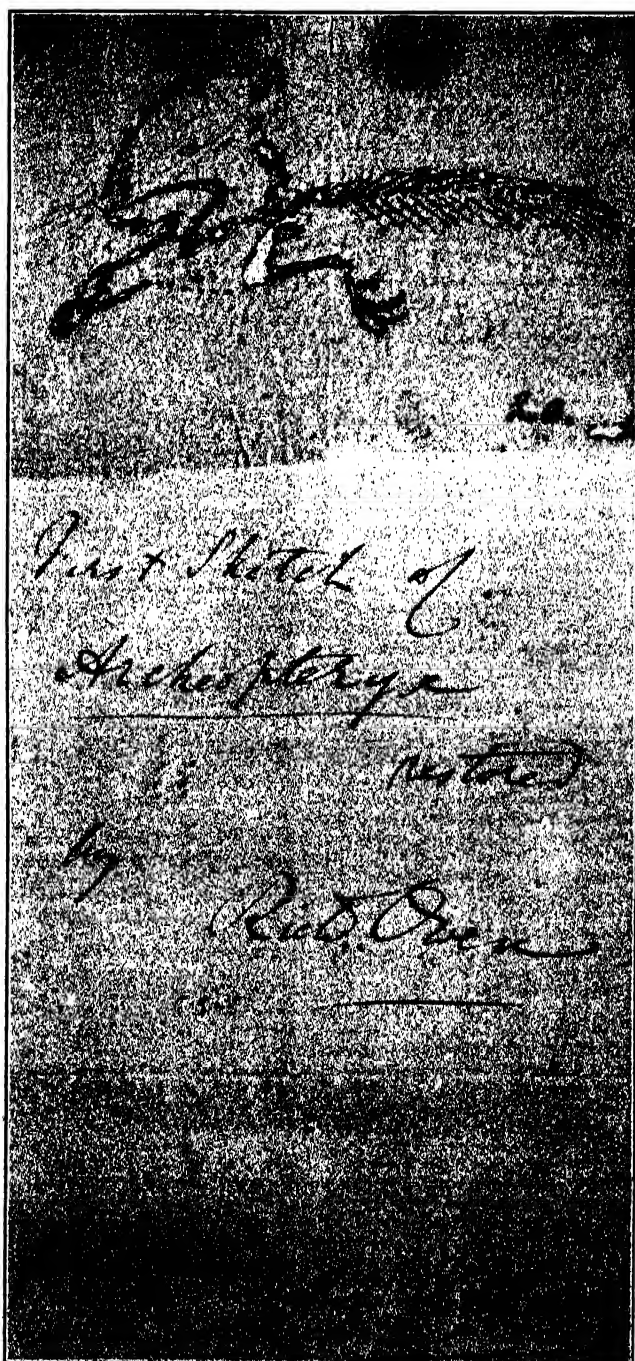 20.
First Sketch of
Archeopteryx
restored
by
Richd. Owen